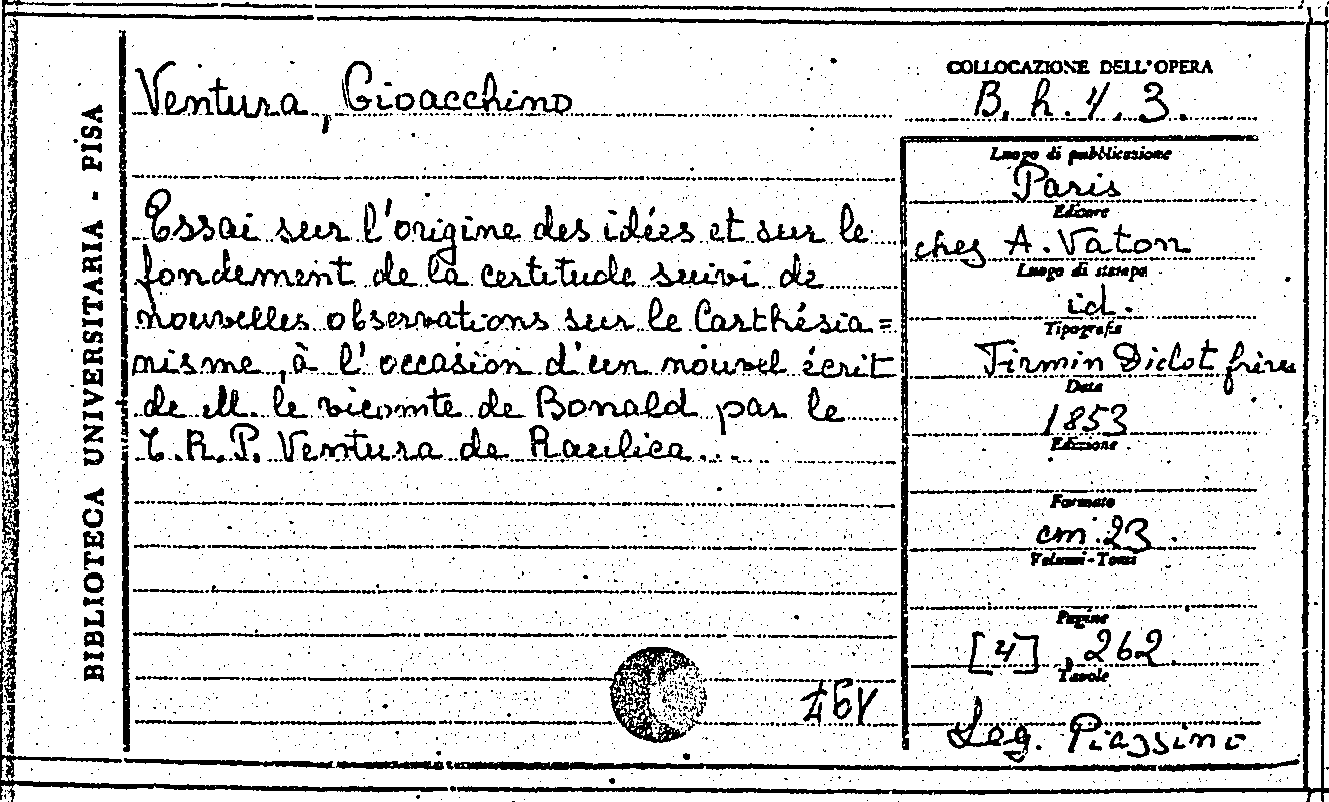 BIBLIOTECA UNIVERSITARIA - PISA
Ventura, Gioacchino
Essai sur l'origine des idées et sur le
fondement de la certitude suivi de
nouvelles observations sur le Carthésia=
nisme, à l'occasion d'un nouvel écrit
de M. le vicomte de Bonald par le
T.R.P. Ventura de Raulica...
COLLOCAZIONE DELL'OPERA
B. h. 4. 3.
Luogo di pubblicazione
Paris
Editore
chez A. Vaton
Luogo di stampa
id.
Tipografia
Firmin Didot frères
Data
1853
Edizione
Formato
cm. 23
Volumi - Tomi
Pagine
[4], 262
Tavole
Leg. Piazzini